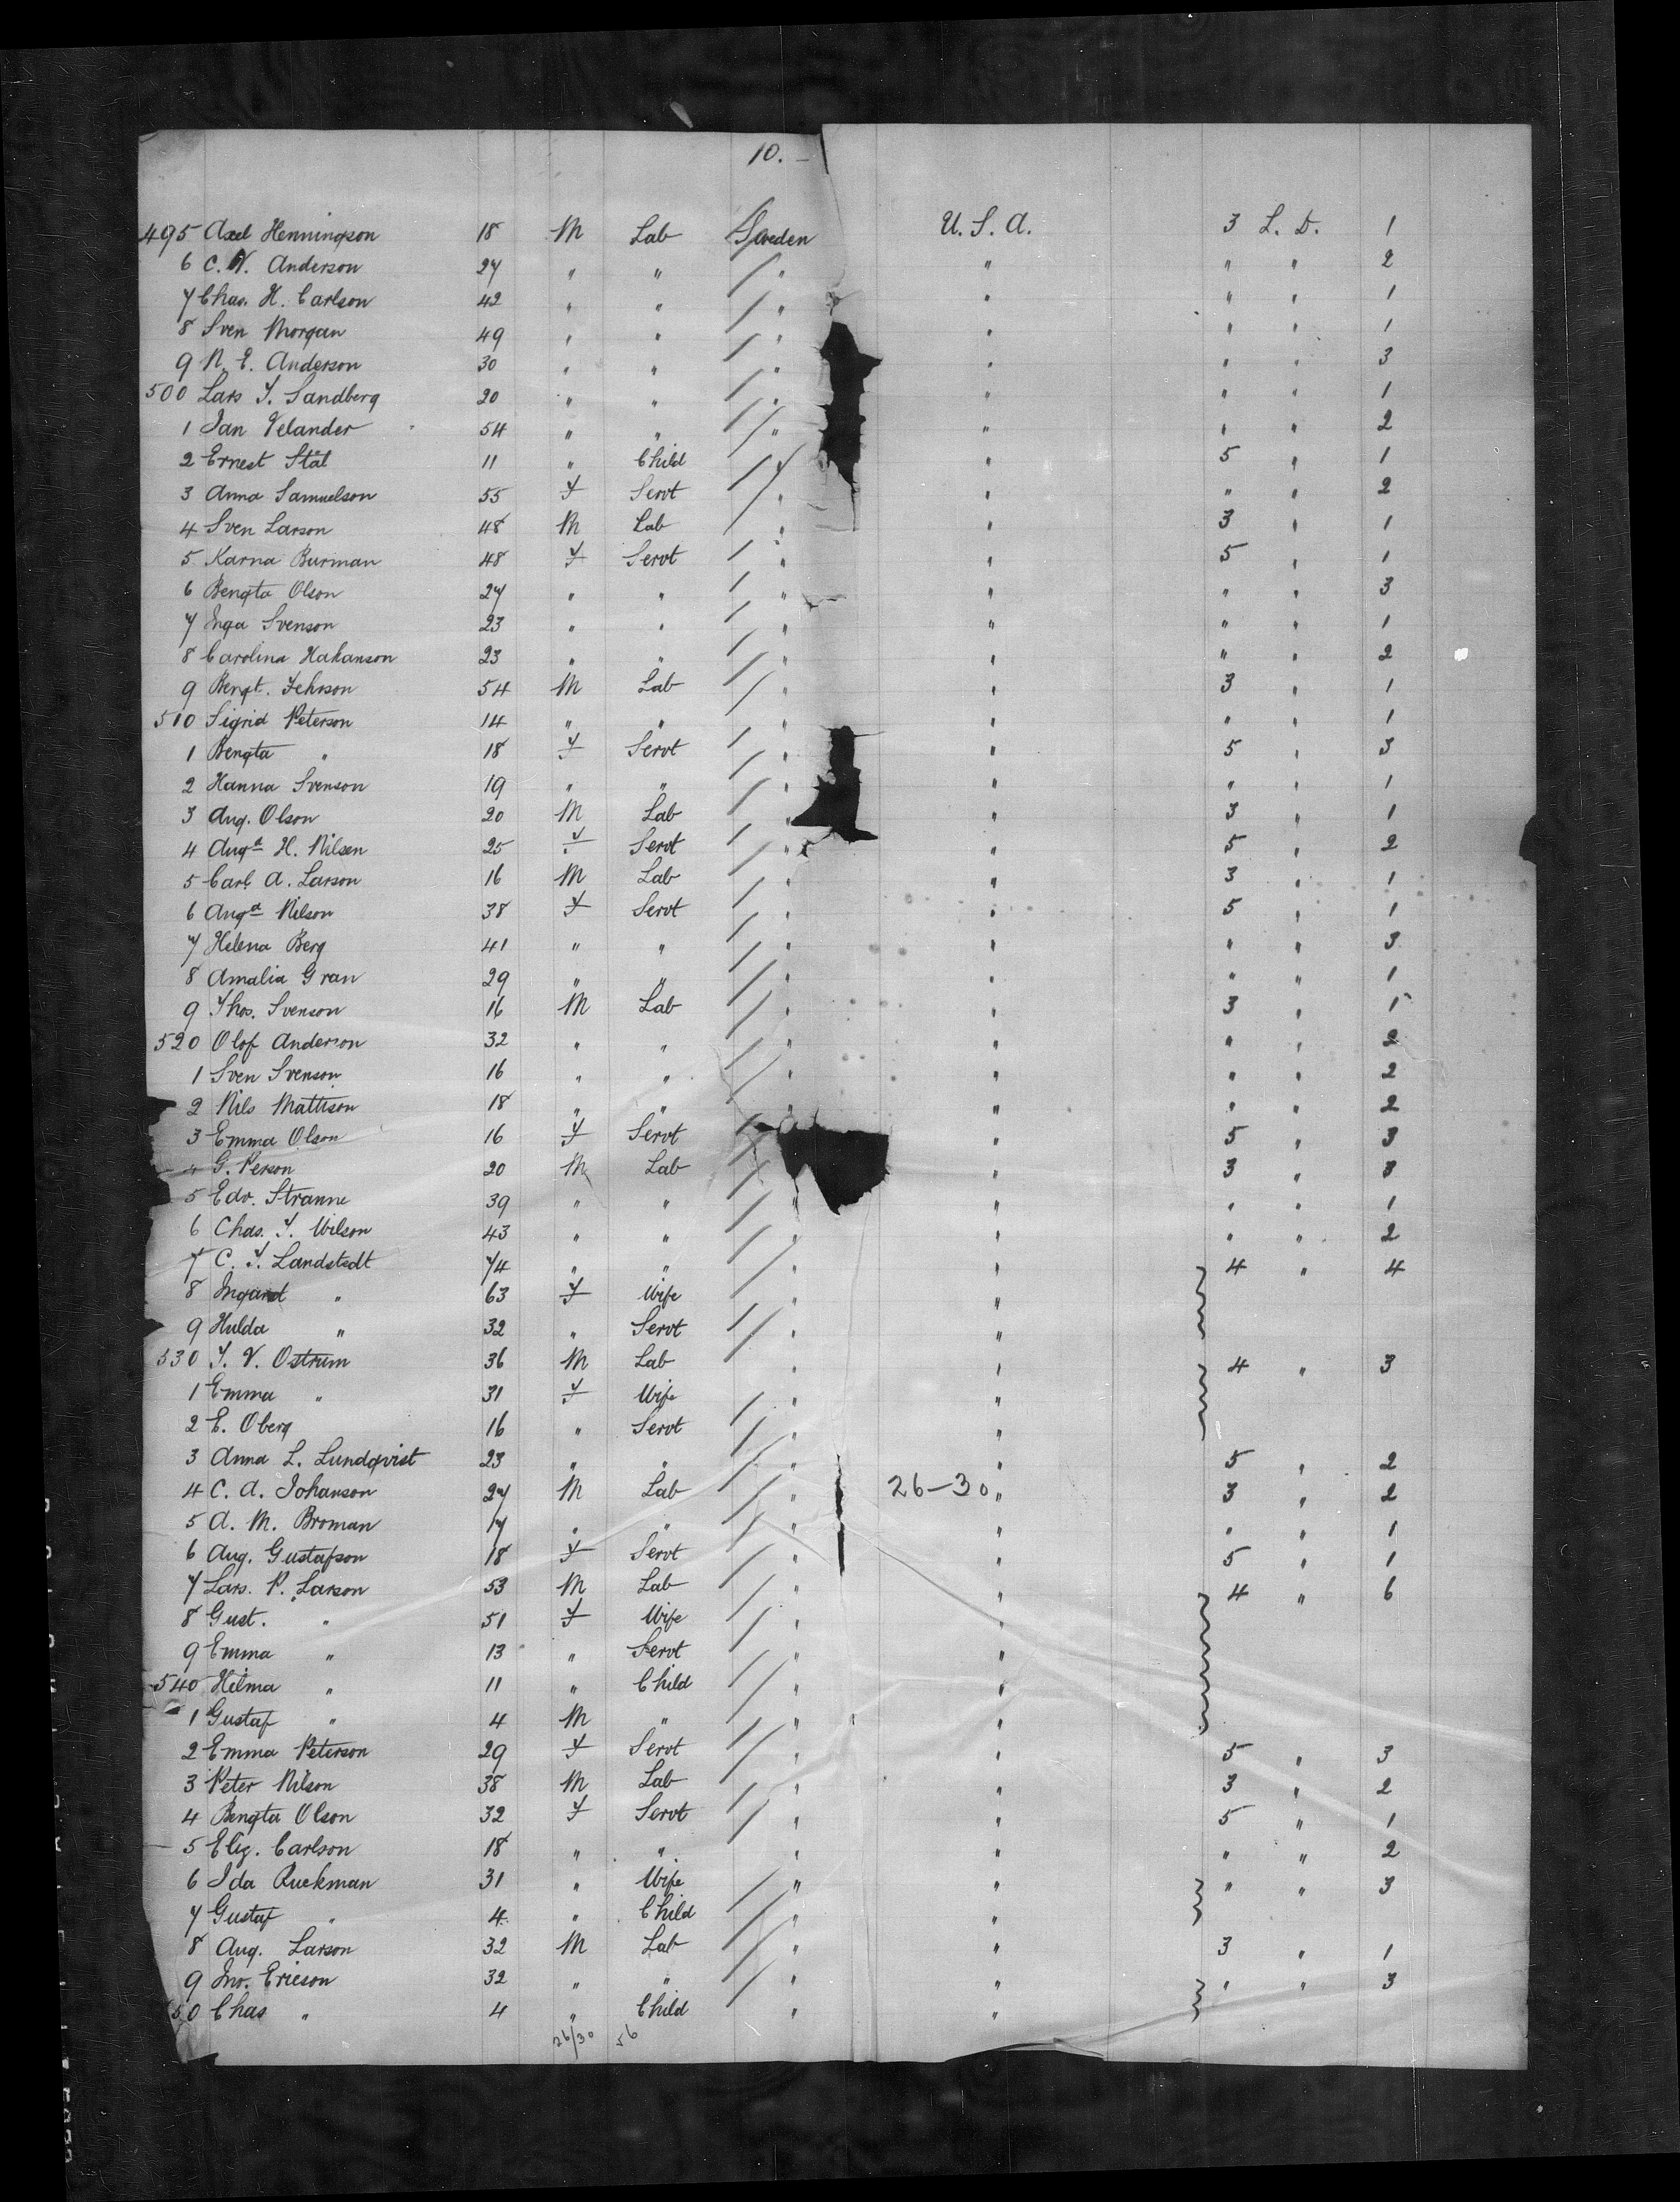 10. –
495 Axel Henningson 18 M Lab Sweden U. S. A. 3 L. D. 1
6 C. V. Anderson 27 " " " " " " 2
7 Chas. H. Carlson 42 " " " " " " 1
8 Sven Morgan 49 " " " " " " 1
9 N. E. Anderson 30 " " " " " " 3
500 Lars J. Sandberg 20 " " " " " " 1
1 Jan Velander 54 " " " " " " 2
2 Ernest Stål 11 " Child " " 5 " 1
3 Anna Samuelson 55 F Servt " " " " 2
4 Sven Larson 48 M Lab " " 3 " 1
5 Karna Burman 48 F Servt " " 5 " 1
6 Bengta Olson 27 " " " " " " 3
7 Inga Svenson 23 " " " " " " 1
8 Carolina Hakanson 23 " " " " " " 2
9 Bengt. Jehnson 54 M Lab " " 3 " 1
510 Sigrid Peterson 14 " " " " " " 1
1 Bengta " 18 F Servt " " 5 " 3
2 Hanna Svenson 19 " " " " " " 1
3 Aug. Olson 20 M Lab " " 3 " 1
4 Auga H. Nilsen 25 F Servt " " 5 " 2
5 Carl A. Larson 16 M Lab " " 3 " 1
6 Auga Nilson 38 F Servt " " 5 " 1
7 Helena Berg 41 " " " " " " 3
8 Amalia Gran 29 " " " " " " 1
9 Thos. Svenson 16 M Lab " " 3 " 1
520 Olof Anderson 32 " " " " " " 2
1 Sven Svenson 16 " " " " " " 2
2 Nils Mattison 18 " " " " " " 2
3 Emma Olson 16 F Servt " 5 " 3
4 G. Person 20 M Lab " 3 " 3
5 Edv. Stranne 39 " " " " " " 1
6 Chas. F. Wilson 43 " " " " " " 2
7 C. F. Landstedt 74 " " " " 4 " 4
8 " 63 F Wife " "
9 Hulda " 32 " Servt " "
530 J. V. Ostrum 36 M Lab " " 4 " 3
1 Emma " 31 F Wife " "
2 E. Oberg 16 " Servt " "
3 Anna L. Lundqvist 23 " " " " 5 " 2
4 C. A. Johanson 27 M Lab " 26–30 " 3 " 2
5 A. M. Broman 17 " " " " " " 1
6 Aug. Gustafson 18 F Servt " " 5 " 1
7 Lars. P. Larson 53 M Lab " " 4 " 6
8 Gust. " 51 F Wife " "
9 Emma " 13 " Servt " "
540 Hilma " 11 " Child " "
1 Gustaf " 4 M " " "
2 Emma Peterson 29 F Servt " " 5 " 3
3 Peter Nilson 38 M Lab " " 3 " 2
4 Bengta Olson 32 F Servt " " 5 " 1
5 Eliz. Carlson 18 " " " " " " 2
6 Ida Ruckman 31 " Wife " " " " 3
7 Gustaf " 4 " Child " "
8 Aug. Larson 32 M Lab " " 3 " 1
9 Jno. Ericson 32 " " " " " " 3
50 Chas " 4 " Child " "
26/30 56